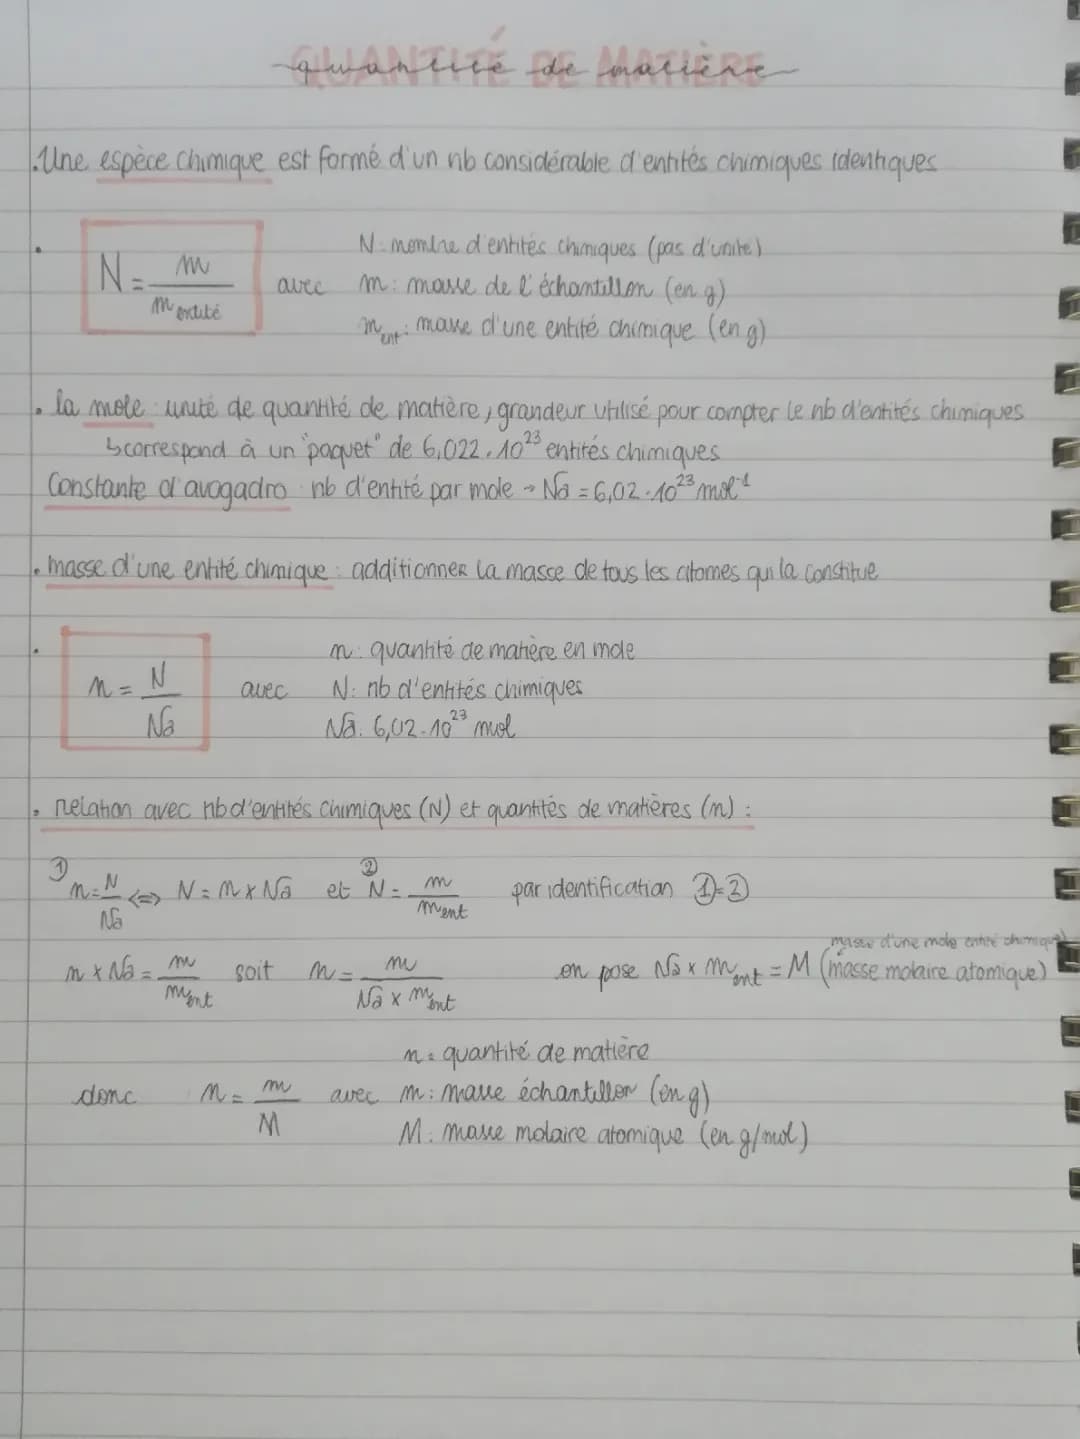 QUANTITÉ DE MATIÈRE
quantité de matière
.Une espèce chimique est formé d'un nb considérable d'entités chimiques identiques
N: nombre d'entités chimiques (pas d'unité)
• N = m / m entité avec m: masse de l'échantillon (en g)
m ent: masse d'une entité chimique (en g)
. la mole : unité de quantité de matière, grandeur utilisé pour compter le nb d'entités chimiques
↳ correspond à un "paquet" de 6,022.10²³ entités chimiques
Constante d'avogadro : nb d'entité par mole → Na = 6,02.10²³ mol⁻¹
. masse d'une entité chimique : additionner la masse de tous les atomes qui la constitue
n: quantité de matière en mole
• n = N / Na avec N: nb d'entités chimiques
Na: 6,02.10²³ mol
. relation avec nb d'entités chimiques (N) et quantités de matières (n) :
① n = N / Na <=> N = n x Na et ② N = m / ment par identification ①=②
masse d'une mole entité chimique
n x Na = m / ment soit n = m / Na x ment on pose Na x ment = M (masse molaire atomique)
n = quantité de matière
donc n = m / M avec m: masse échantillon (en g)
M: masse molaire atomique (en g/mol)